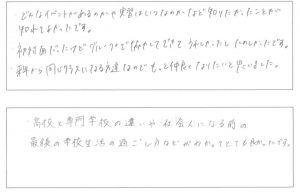 ・どんなイベントがあるのかや実習はいつなのかなど知りたかったことが
知れてよかったです。
・初対面だったけどグループで仲良くできてうれしかったしたのしかったです。
・来年から同じクラスになる友達なのでもっと仲良くなりたいと思いました。
・高校と専門学校の違いや社会人になる前の
最後の学校生活の過ごし方などがわかってとても良かったです。